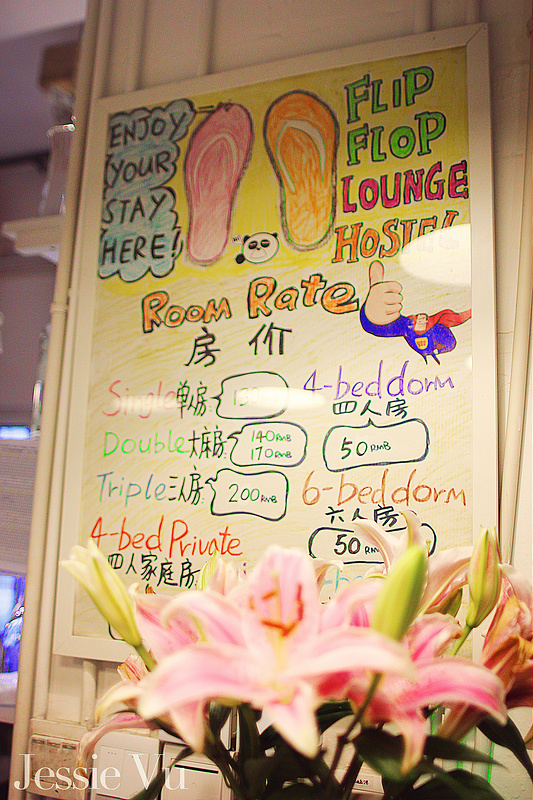 ENJOY
YOUR
STAY
HERE!
FLIP
FLOP
LOUNGE
HOSTEL
Room Rate
房价
Single 单房:
Double 大麻房: 140RMB
170RMB
Triple 三人房: 200RMB
4-bed Private
四人家庭房
4-bed dorm
四人房
50RMB
6-bed dorm
六人房
50RM
Jessie Vu